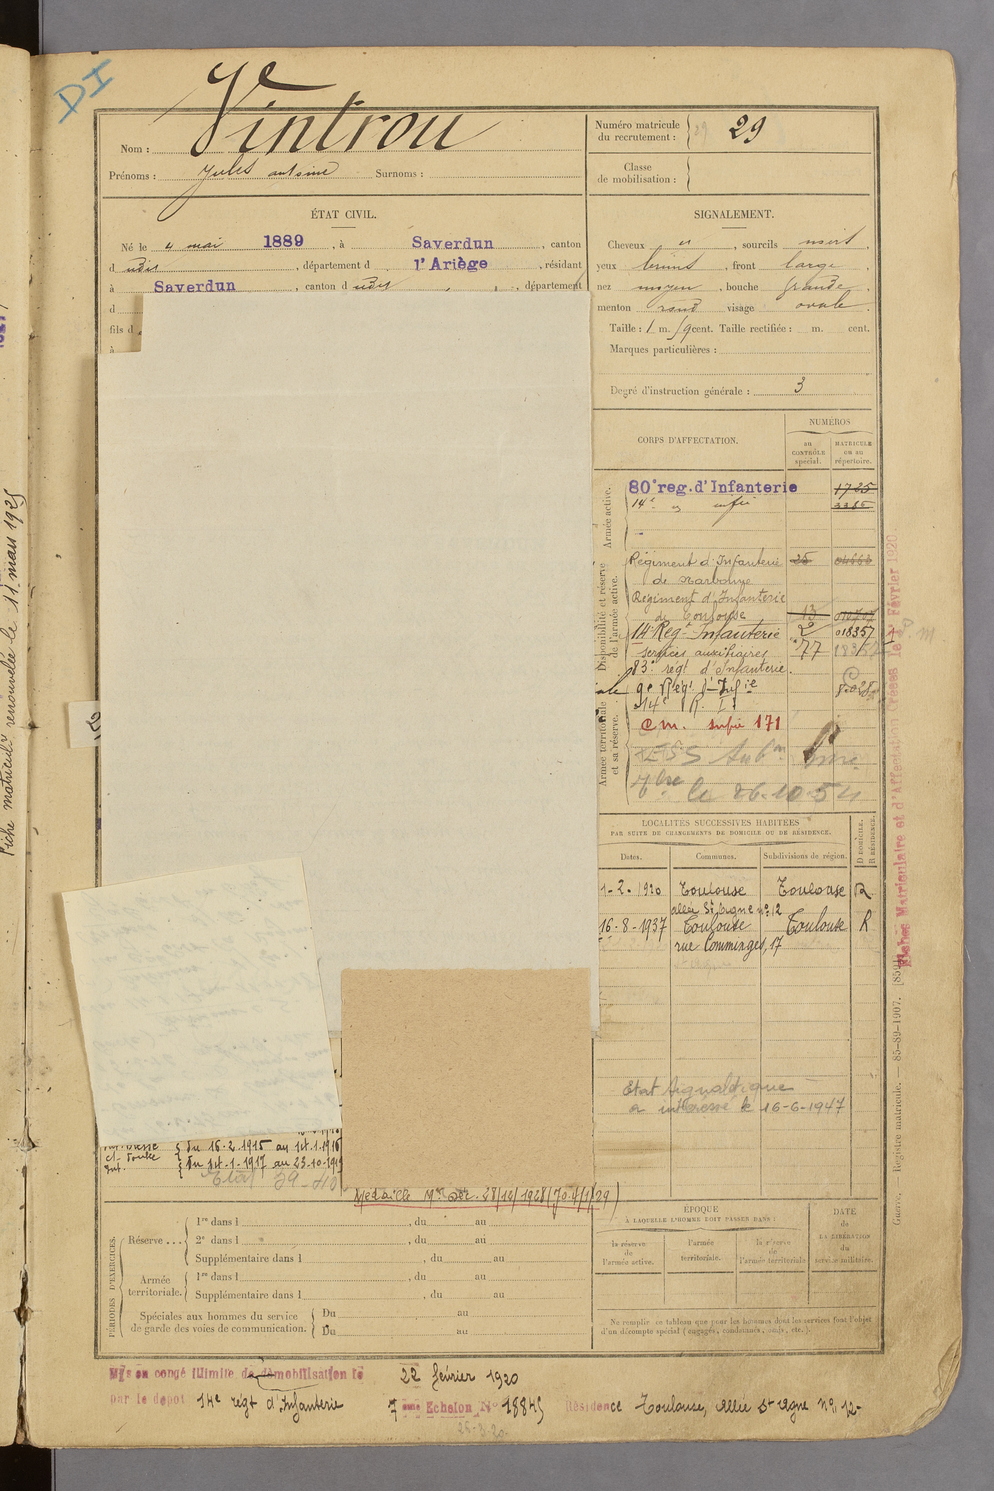 DI
Vintrou
Nom :
Prénoms : Jules antoine Surnoms :
Numéro matricule
du recrutement : 29
Classe
de mobilisation :
ÉTAT CIVIL.
Né le 4 mai 1889, à Saverdun, canton
d udit, département d l'Ariège, résidant
à Saverdun, canton d udit, département
d
fils d
à
SIGNALEMENT.
Cheveux et, sourcils noirs,
yeux bruns, front large
nez moyen, bouche grande,
menton rond visage ovale.
Taille : 1 m. cent. Taille rectifiée : m. cent.
Marques particulières :
Degré d'instruction générale : 3
CORPS D'AFFECTATION.
NUMÉROS
au
CONTRÔLE
spécial.
MATRICULE
ou au
répertoire.
Armée active.
80e reg. d'Infanterie 1725
14e infie
Disponibilité et réserve
de l'armée active.
Régiment d'Infanterie 25
de Narbonne
Régiment d'Infanterie
de Toulouse 13
14e Regt Infanterie 018357
services auxiliaires 77
83e régt d'Infanterie.
Armée territoriale
et sa réserve.
9e Régt d'Infie
14e R. I.
C.M. Infie 171
le 26.10.54
LOCALITÉS SUCCESSIVES HABITÉES
PAR SUITE DE CHANGEMENTS DE DOMICILE OU DE RÉSIDENCE.
Dates. Communes. Subdivisions de région. D DOMICILE. R RÉSIDENCE.
1-2-1920 Toulouse Toulouse R
allée St Agne no 12
16-8-1937 Toulouse Toulouse R
rue Comminges, 17
Etat signalétique
a intéressé le 16-6-1947
du 16-2-1915 au 1er-1-1916
du 1er-1-1917 au 23-10-191
Médaille 28/12/1928
PÉRIODES D'EXERCICES.
Réserve ... 1re dans l , du au
2e dans l , du au
Supplémentaire dans l , du au
Armée
territoriale. 1re dans l , du au
Supplémentaire dans l , du au
Spéciales aux hommes du service
de garde des voies de communication. Du au
Du au
ÉPOQUE
À LAQUELLE L'HOMME DOIT PASSER DANS :
la réserve
de
l'armée active.
l'armée
territoriale.
la réserve
de
l'armée territoriale
DATE
de
LA LIBÉRATION
du
service militaire.
Ne remplir ce tableau que pour les hommes dont les services font l'objet
d'un décompte spécial (engagés, condamnés, omis, etc.).
Mis en congé illimité de démobilisation le 22 février 1920
par le dépôt 14e régt d'Infanterie 7eme Echelon No 18845 Résidence Toulouse, Allée St Agne no 12-
Fiche matricule renouvelée le 11 mars 1925
Fiches Matriculaire et d'Affectation créées le Février 1920
Guerre. — Registre matricule. — 85-89-1907.